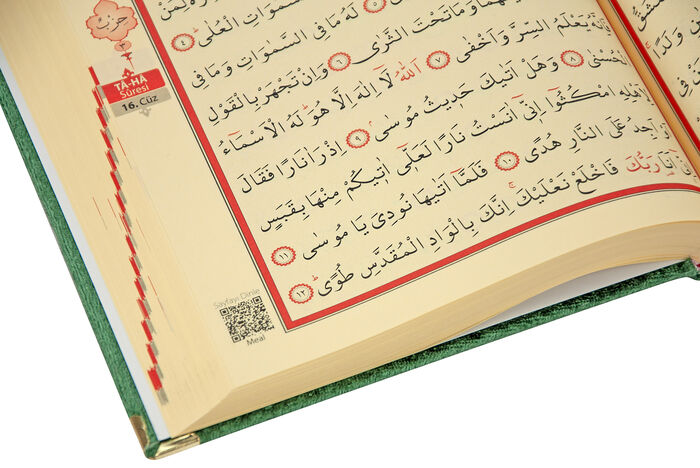 مِمَّنْ
الْعُلٰى ٤
٥ لَهُ مَا فِى السَّمٰوَاتِ وَمَا فِى
بَيْنَهُمَا وَمَا تَحْتَ الثَّرٰى ٦ وَاِنْ تَجْهَرْ بِالْقَوْلِ
فَاِنَّهُ يَعْلَمُ السِّرَّ وَاَخْفٰى ٧ اَللّٰهُ لَٓا اِلٰهَ اِلَّا هُوَ لَهُ الْاَسْمَٓاءُ
الْحُسْنٰى ٨ وَهَلْ اَتٰيكَ حَدِيثُ مُوسٰى ٩ اِذْ رَاٰ نَارًا فَقَالَ
لِاَهْلِهِ امْكُثُٓوا اِنِّٓى اٰنَسْتُ نَارًا لَعَلِّٓى اٰتِيكُمْ مِنْهَا بِقَبَسٍ
اَوْ اَجِدُ عَلَى النَّارِ هُدًى ١٠ فَلَمَّٓا اَتٰيهَا نُودِىَ يَا مُوسٰى ١١
اِنِّٓى اَنَا۬ رَبُّكَ فَاخْلَعْ نَعْلَيْكَ اِنَّكَ بِالْوَادِ الْمُقَدَّسِ طُوًى ١٢
حزب
٣
TÂ-HÂ
Sûresi
16. Cüz
Sayfayı Dinle
Meal